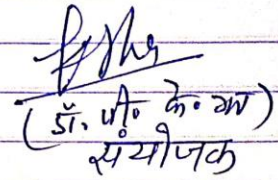 (डॉ. पी. के. )
संयोजक